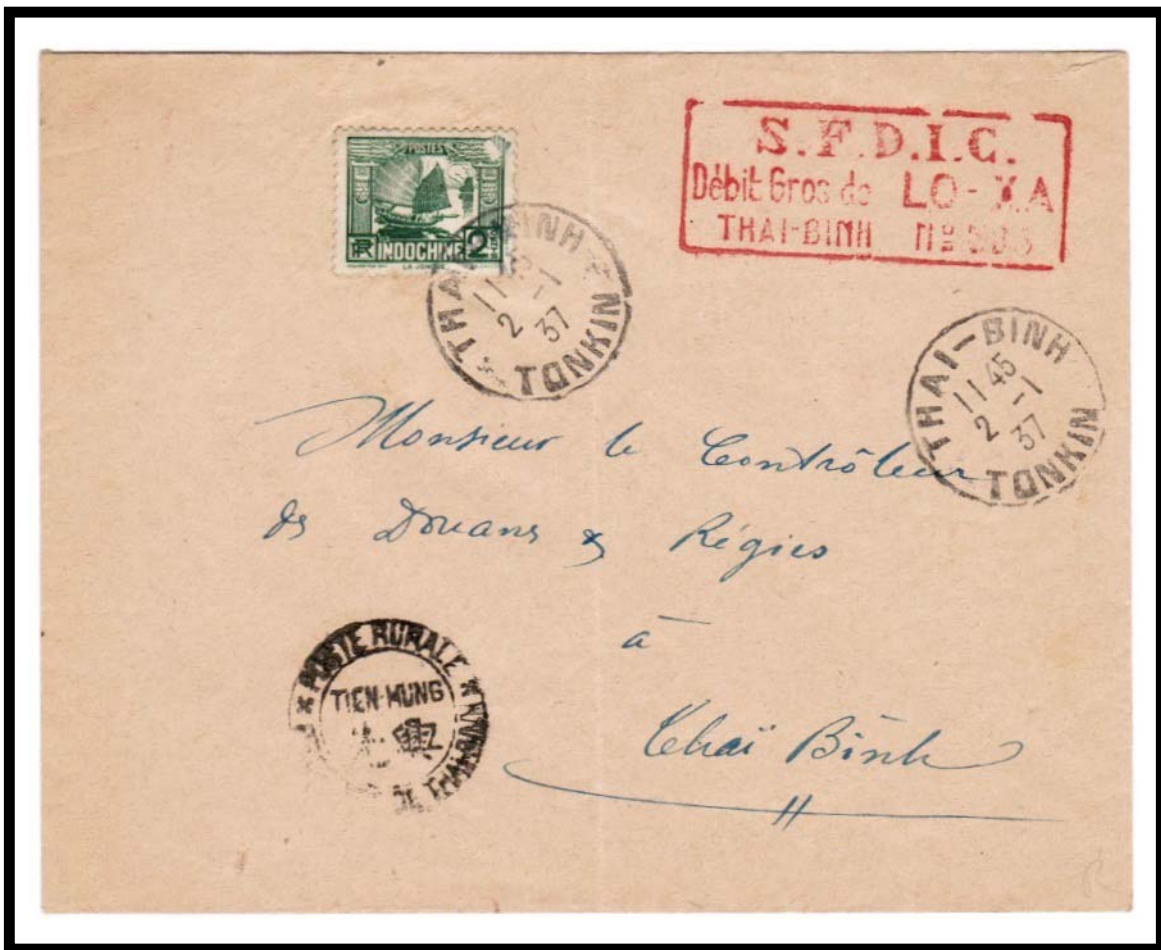 POSTES
INDOCHINE 2
LA JONQUE
S.F.D.I.C.
Débit Gros de LO-XA
THAI-BINH Nº
THAI-BINH
11
2 1
37
TONKIN
THAI-BINH
11 45
2 1
37
TONKIN
Monsieur le Contrôleur
des Douanes & Régies
à
Thaï Binh
POSTE RURALE
TIEN-HUNG
興
DE THAIBINH